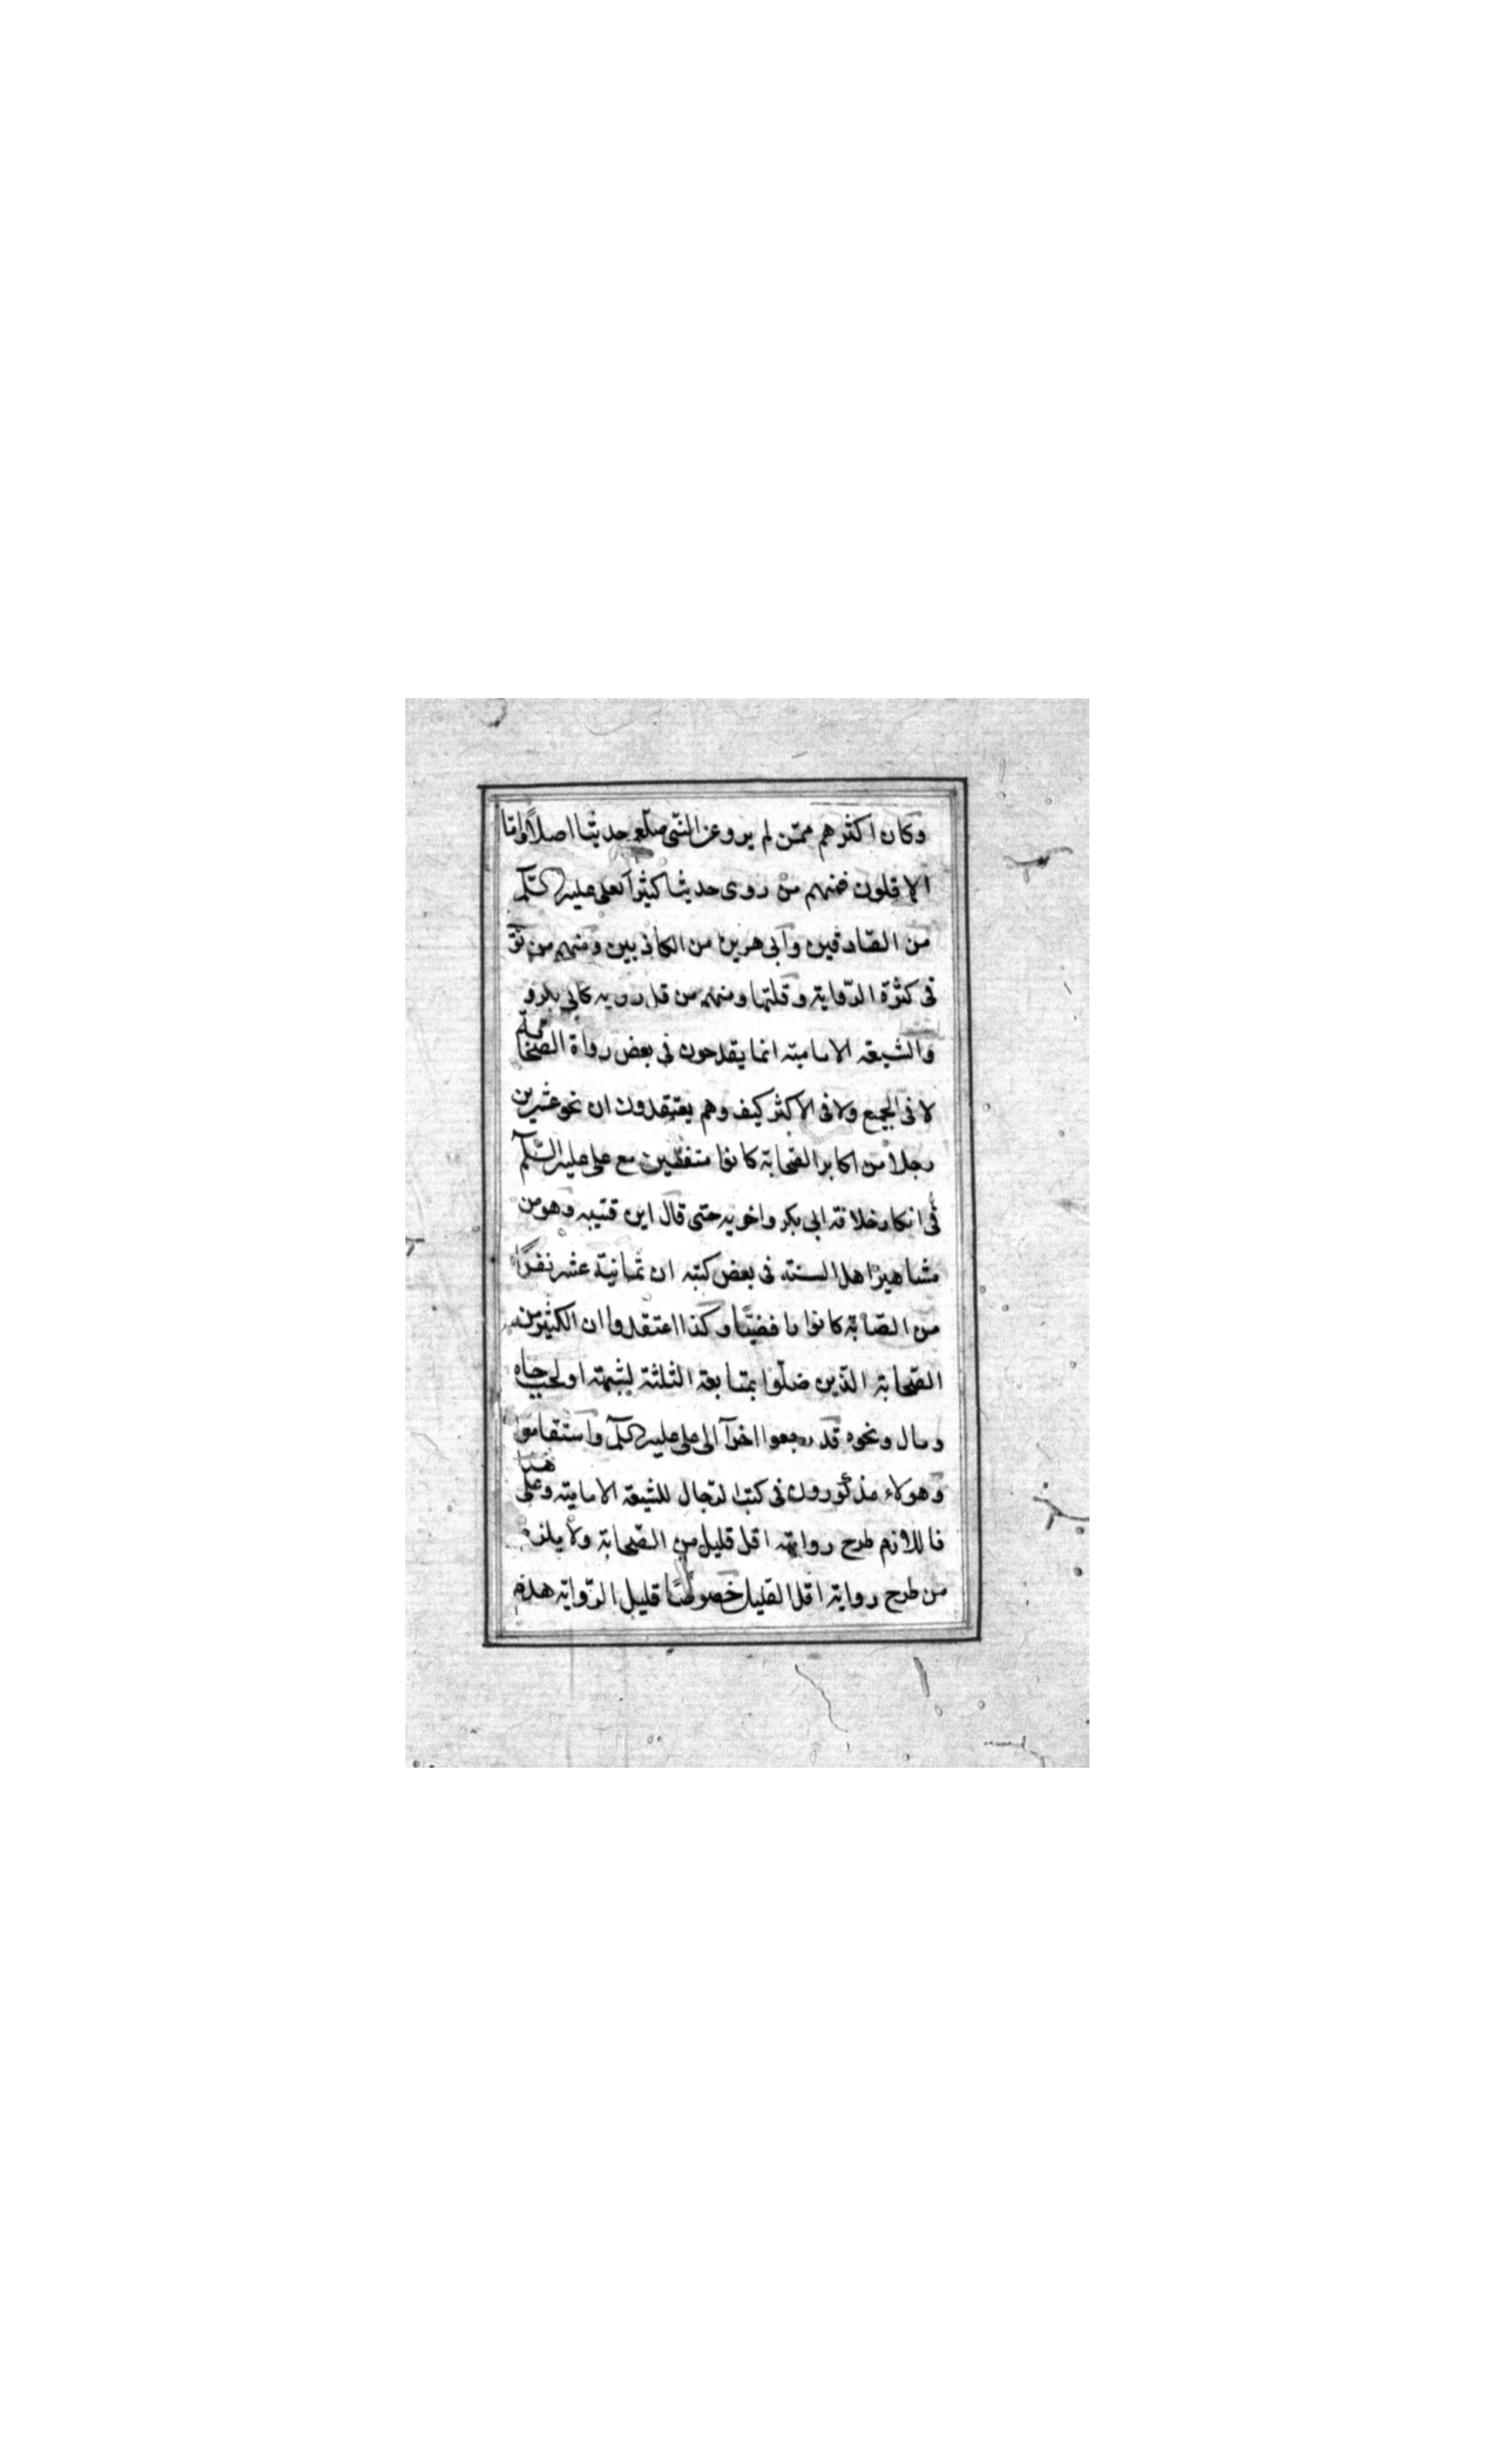 وكان اكثرهم ممّن لم يرو عن النبى صلعم حديثا اصلاً وامّا
الاقلون فمنهم من روى حديثا كثيراً كعلى عليه السلام
من الصّادقين وابى هريرة من الكاذبين ومنهم من توّ
فى كثرة الرّواية وقلتها ومنهم من قل رويه كابى بكر و
والشيعة الاماميّة انما يقدحون فى بعض رواة الصّحابة
لا فى الجميع ولا فى الاكثر كيف وهم يعتقدون ان نحو عشرين
رجلاً من اكابر الصّحابة كانوا متفقين مع على عليه السّلام
فى انكار خلافة ابى بكر واخويه حتى قال ابن قتيبه وهو من
مشاهير اهل السنته فى بعض كتبه ان ثمانية عشر نفراً
من الصّابة كانوا رافضيّا وكذا اعتقدوا ان الكثير من
الصّحابة الذين ضلّوا بمتابعة الثلثة لشبهة او لحب جاه
ومال ونحوه قد رجعوا اخراً الى على عليه السلام واستقاموا
وهولاء مذكورون فى كتب الرّجال للشيعة الاماميّة وعلى هذا
فاللازم طرح رواية اقل قليل من الصّحابة ولا يلزم
من طرح رواية اقل القليل خصوصًا قليل الرّواية هدم